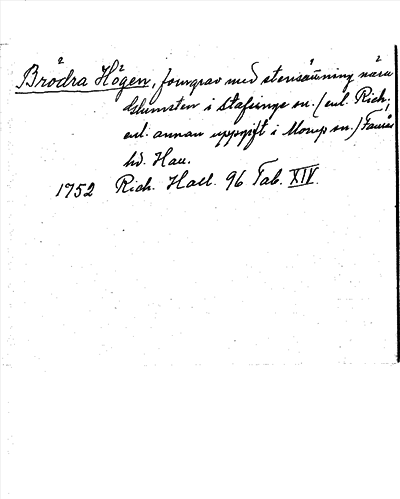 Brodra Högen, forngrav med stensättning nära
Glumsten i Stafsinge sn. (enl. Rich.,
enl. annan uppgift i Morup sn.) Faurås
hd. Hall.
1752 Rich. Hall. 96 Tab. XIV.